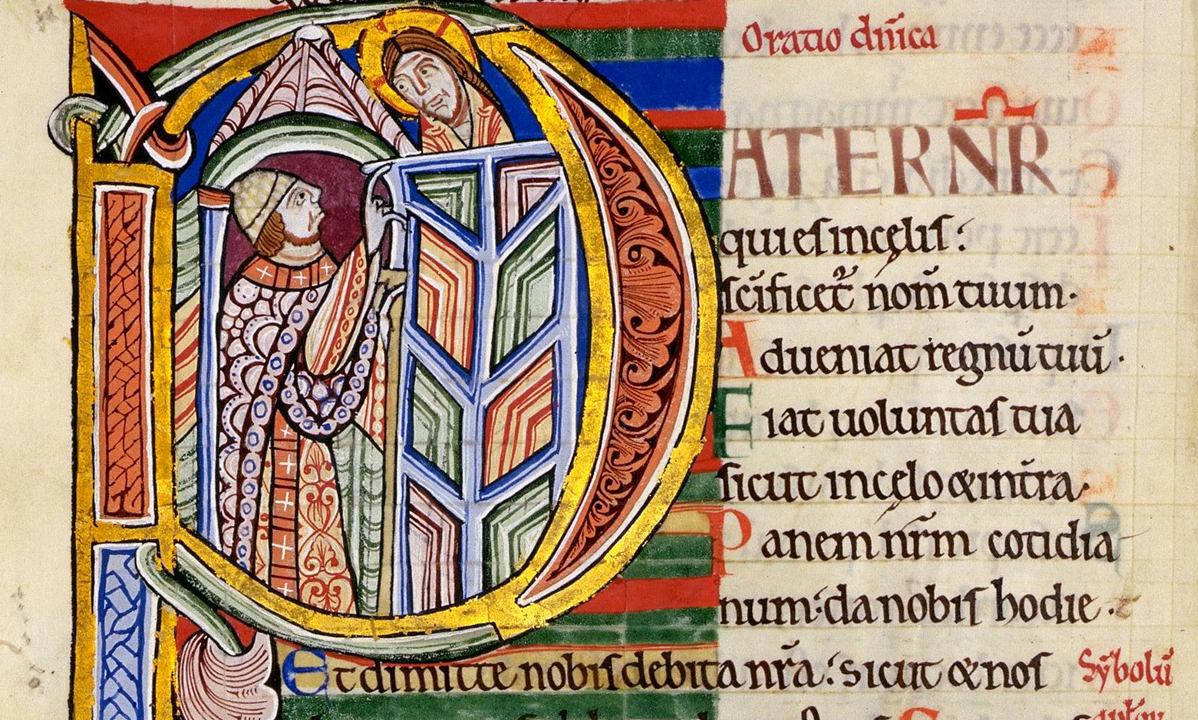 Oratio dn̄ica
PATER NR̄
qui es in cęlis:
scīficet᷑ nom̄ tuum.
Adueniat regnū tuū.
Fiat uoluntas tua
sicut in cęlo & in tr̄a.
Panem nr̄m cotidia
num: da nobis hodie.
Et dimitte nobis debita nr̄a: sicut & nos
Sȳbolū